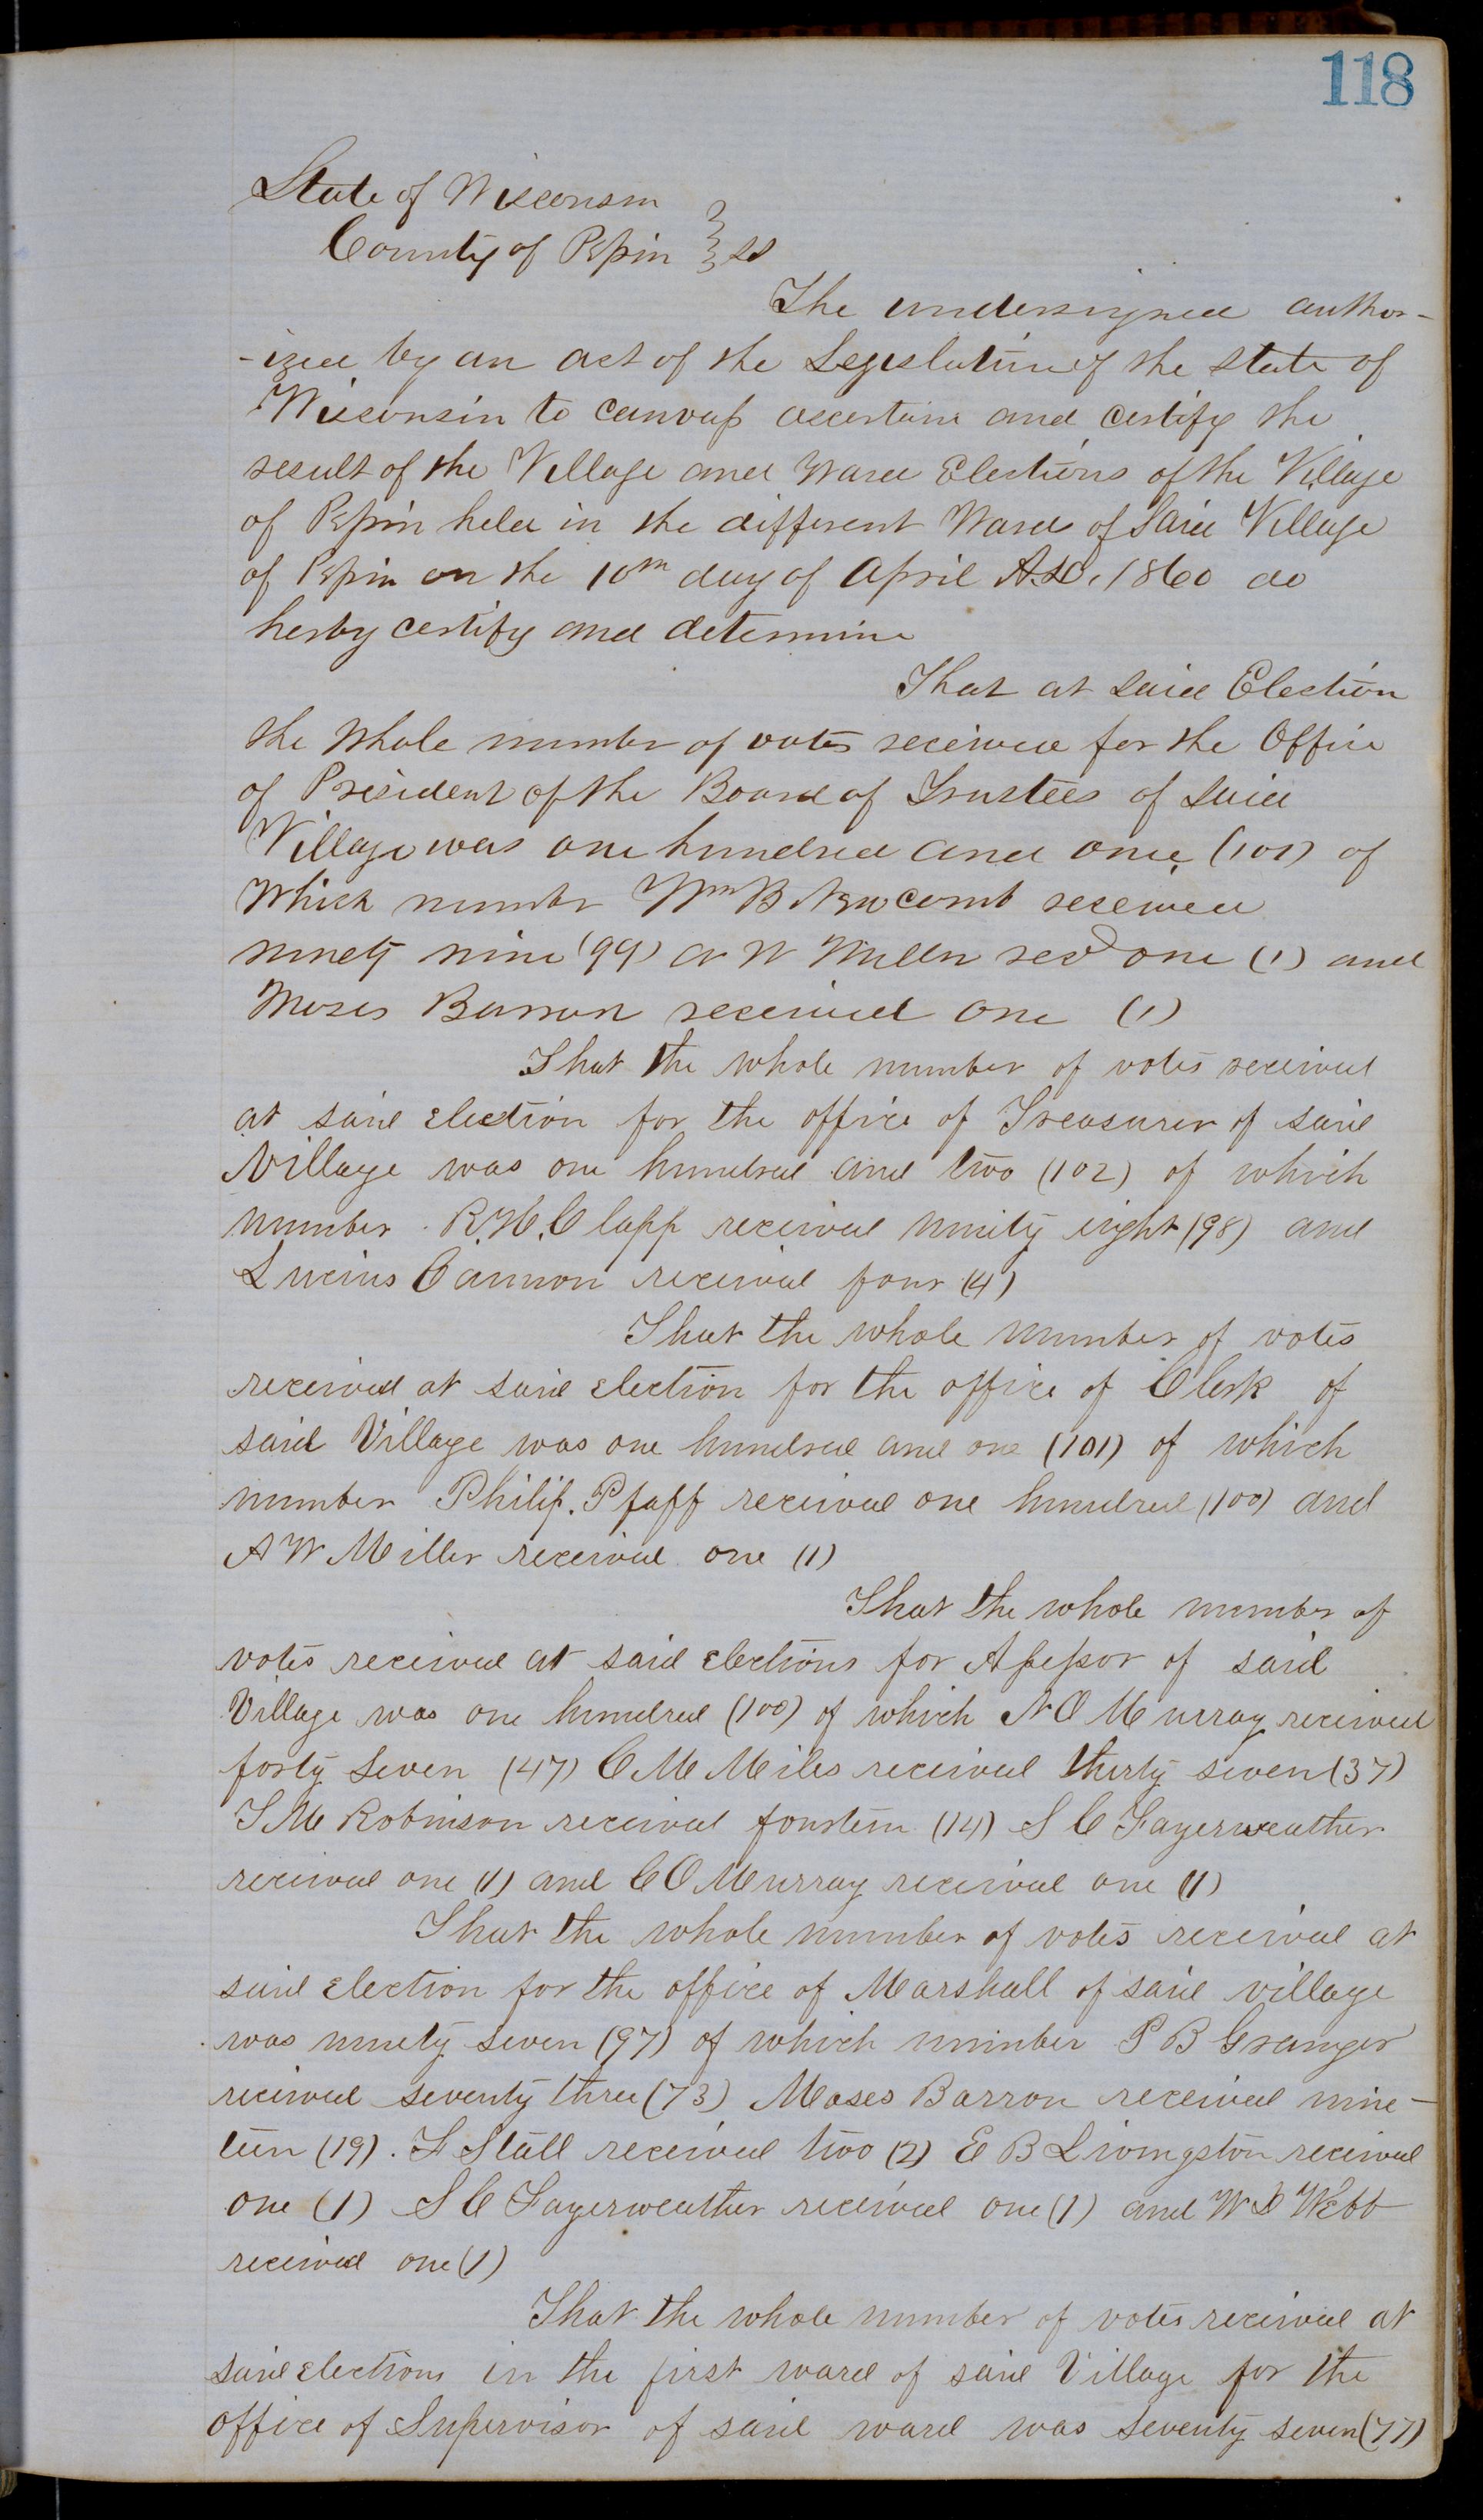 118
State of Wisconsin
County of Pepin } ss
The undersigned author-
-ized by an act of the Legislature of the State of
Wisconsin to canvass ascertain and certify the
result of the Village and Ward Elections of the Village
of Pepin held in the different Wards of Said Village
of Pepin on the 10th day of April A.D. 1860 do
herby certify and determine
That at said Election
the whole number of votes received for the Office
of President of the Board of Trustees of said
Village was one hundred and one (101) of
Which number Wm B Newcomb received
ninety nine (99) A W Miller recd one (1) and
Moses Barron received one (1)
That the whole number of votes received
at said election for the office of Treasurer of said
Village was one hundred and two (102) of which
number R.H.Clapp received ninity eight (98) and
Lucius Cannon received four (4)
That the whole number of votes
received at said election for the office of Clerk of
said Village was one hundred and one (101) of which
number Philip. Pfaff received one hundred (100) and
A W Miller received one (1)
That the whole number of
votes received at said elections for Assessor of said
Village was one hundred (100) of which N O Murray received
forty seven (47) C M Miles received thirty seven (37)
T M Robinson received fourteen (14) S C Fayerweather
received one (1) and C O Murray received one (1)
That the whole number of votes received at
said election for the office of Marshall of said village
was ninety seven (97) of which number P B Granger
received seventy three (73) Moses Barron received nine-
teen (19). F Stall received two (2) E B Livingston received
one (1) S C Fayerweather received one (1) and W D Webb
received one (1)
That the whole number of votes received at
said elections in the first ward of said Village for the
office of Supervisor of said ward was seventy seven (77)